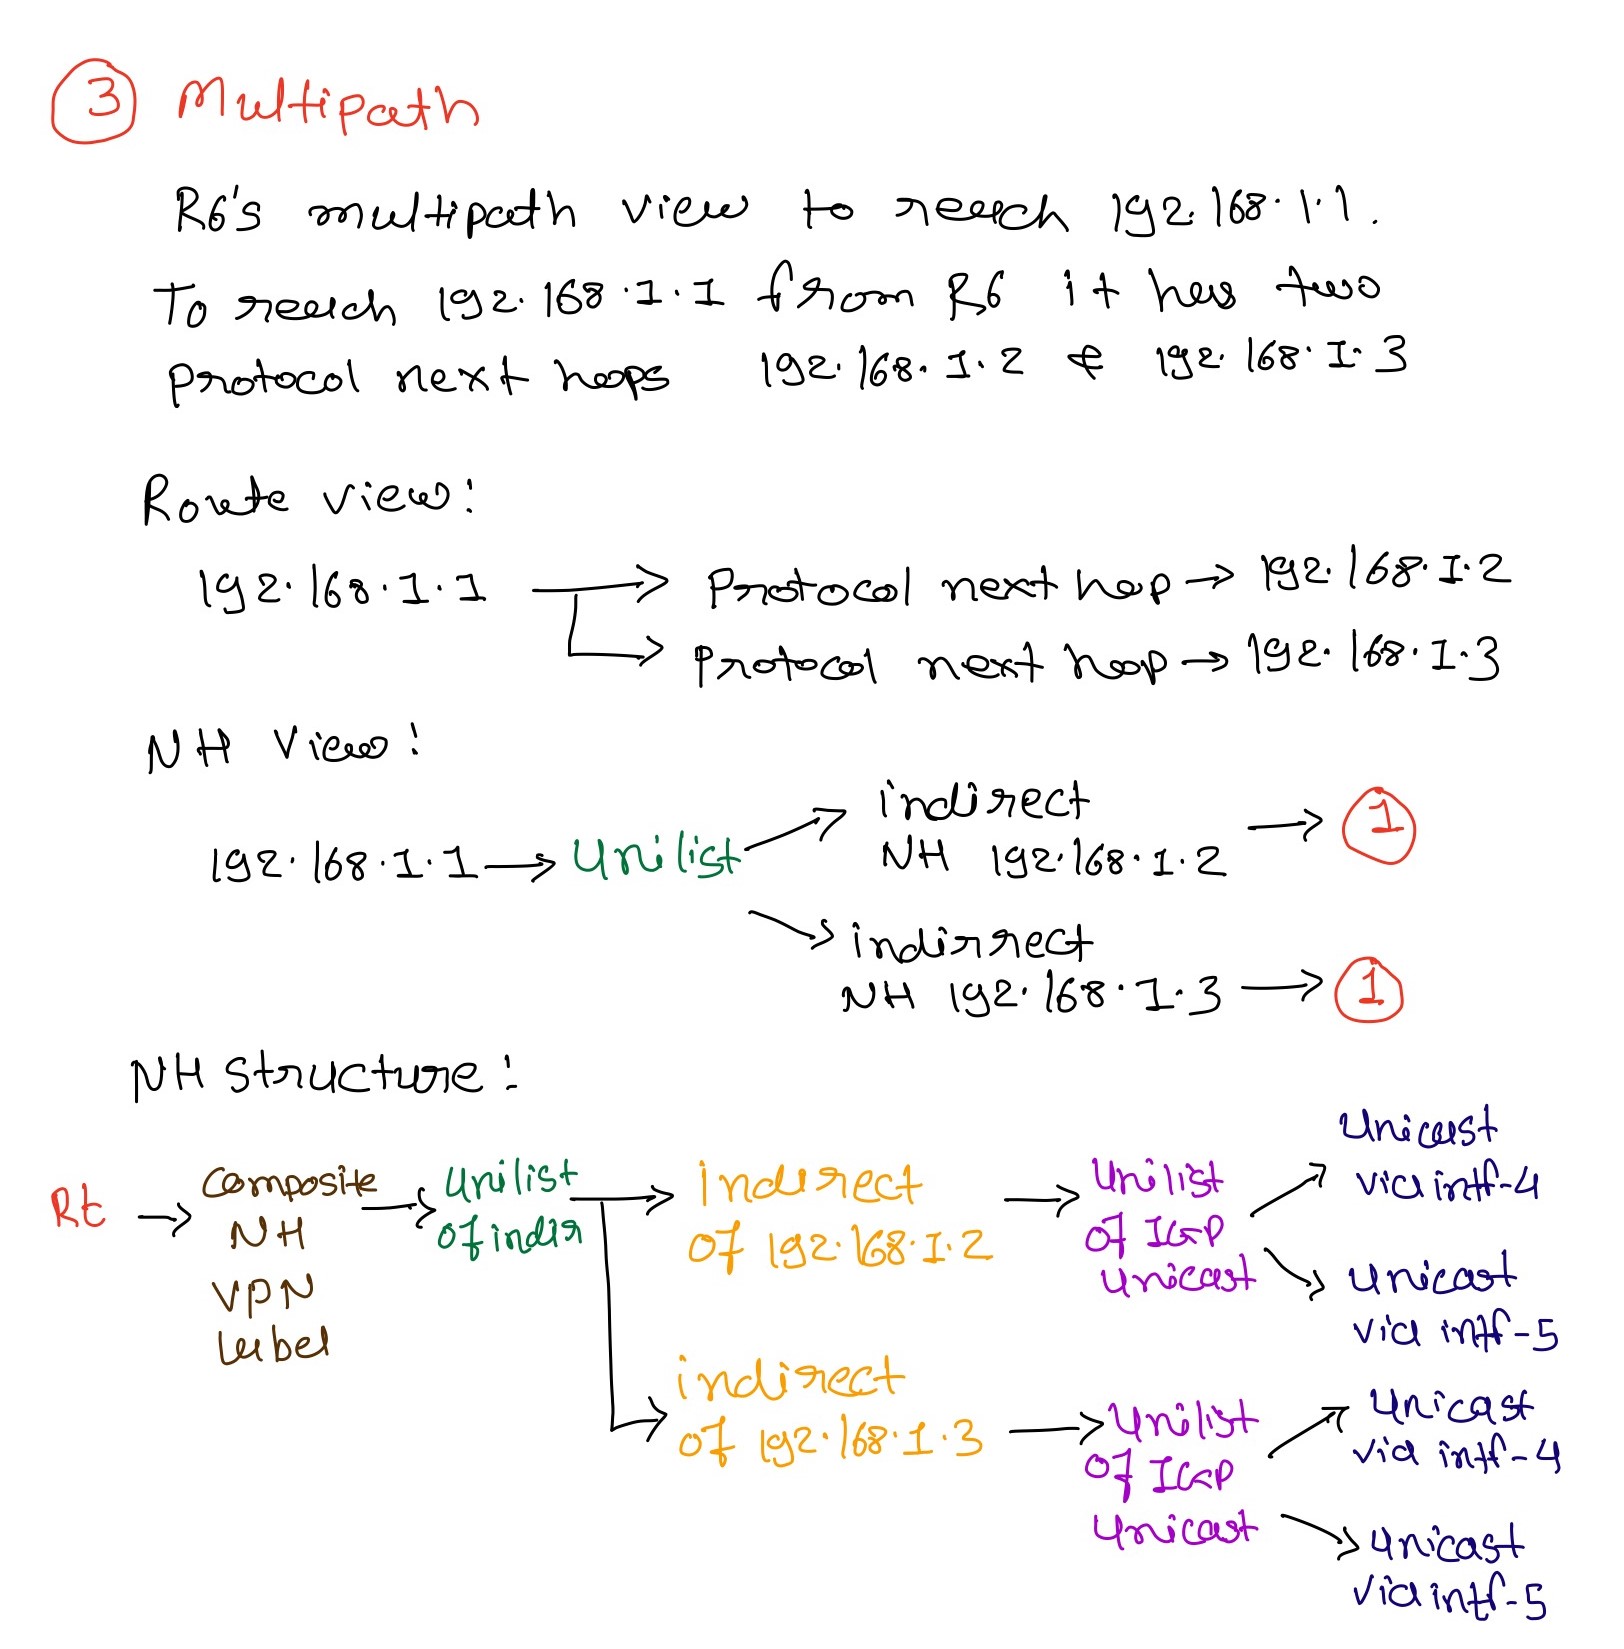 3 Multipath
R6's multipath view to reach 192.168.1.1.
To reach 192.168.1.1 from R6 it has two
protocol next hops 192.168.1.2 & 192.168.1.3
Route view:
192.168.1.1 → Protocol next hop → 192.168.1.2
→ Protocol next hop → 192.168.1.3
NH View:
192.168.1.1 → Unilist
→ indirect
NH 192.168.1.2 → 1
→ indirrect
NH 192.168.1.3 → 1
NH Structure:
Rt →
Composite
NH
VPN
Label
→ Unilist
of indir
→ Indirect
of 192.168.1.2
→ Unilist
of IGP
Unicast
→ Unicast
via intf-4
→ Unicast
via intf-5
→ indirect
of 192.168.1.3
→ Unilist
of IGP
Unicast
→ Unicast
via intf-4
→ Unicast
via intf-5